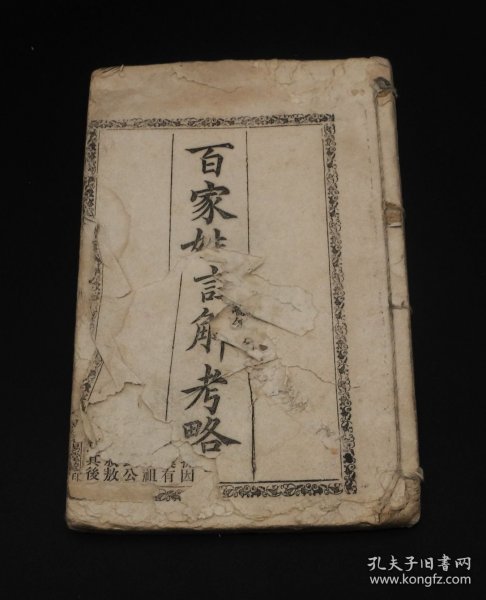 百家姓註解考略
因有祖公敖後
孔夫子旧书网
www.kongfz.com